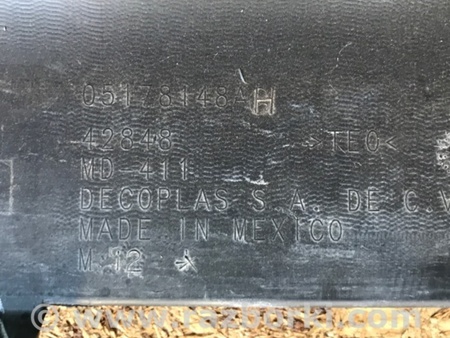 05178148AH
42848 >TEO<
MD-411
DECOPLAS S.A. DE C.V
MADE IN MEXICO
M-12
www.razborki.com